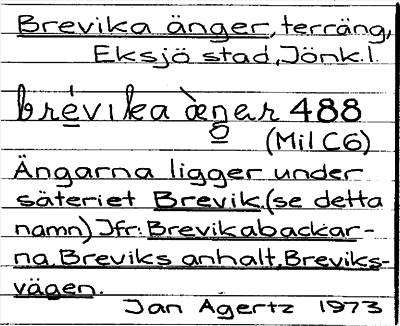 Brevika änger, terräng,
Eksjö stad, Jönk. l.
brévika æ̀ŋar 488
(Mil C6)
Ängarna ligger under
säteriet Brevik (se detta
namn) Jfr: Brevikabackar-
na, Breviks anhalt, Breviks-
vägen.
Jan Agertz 1973